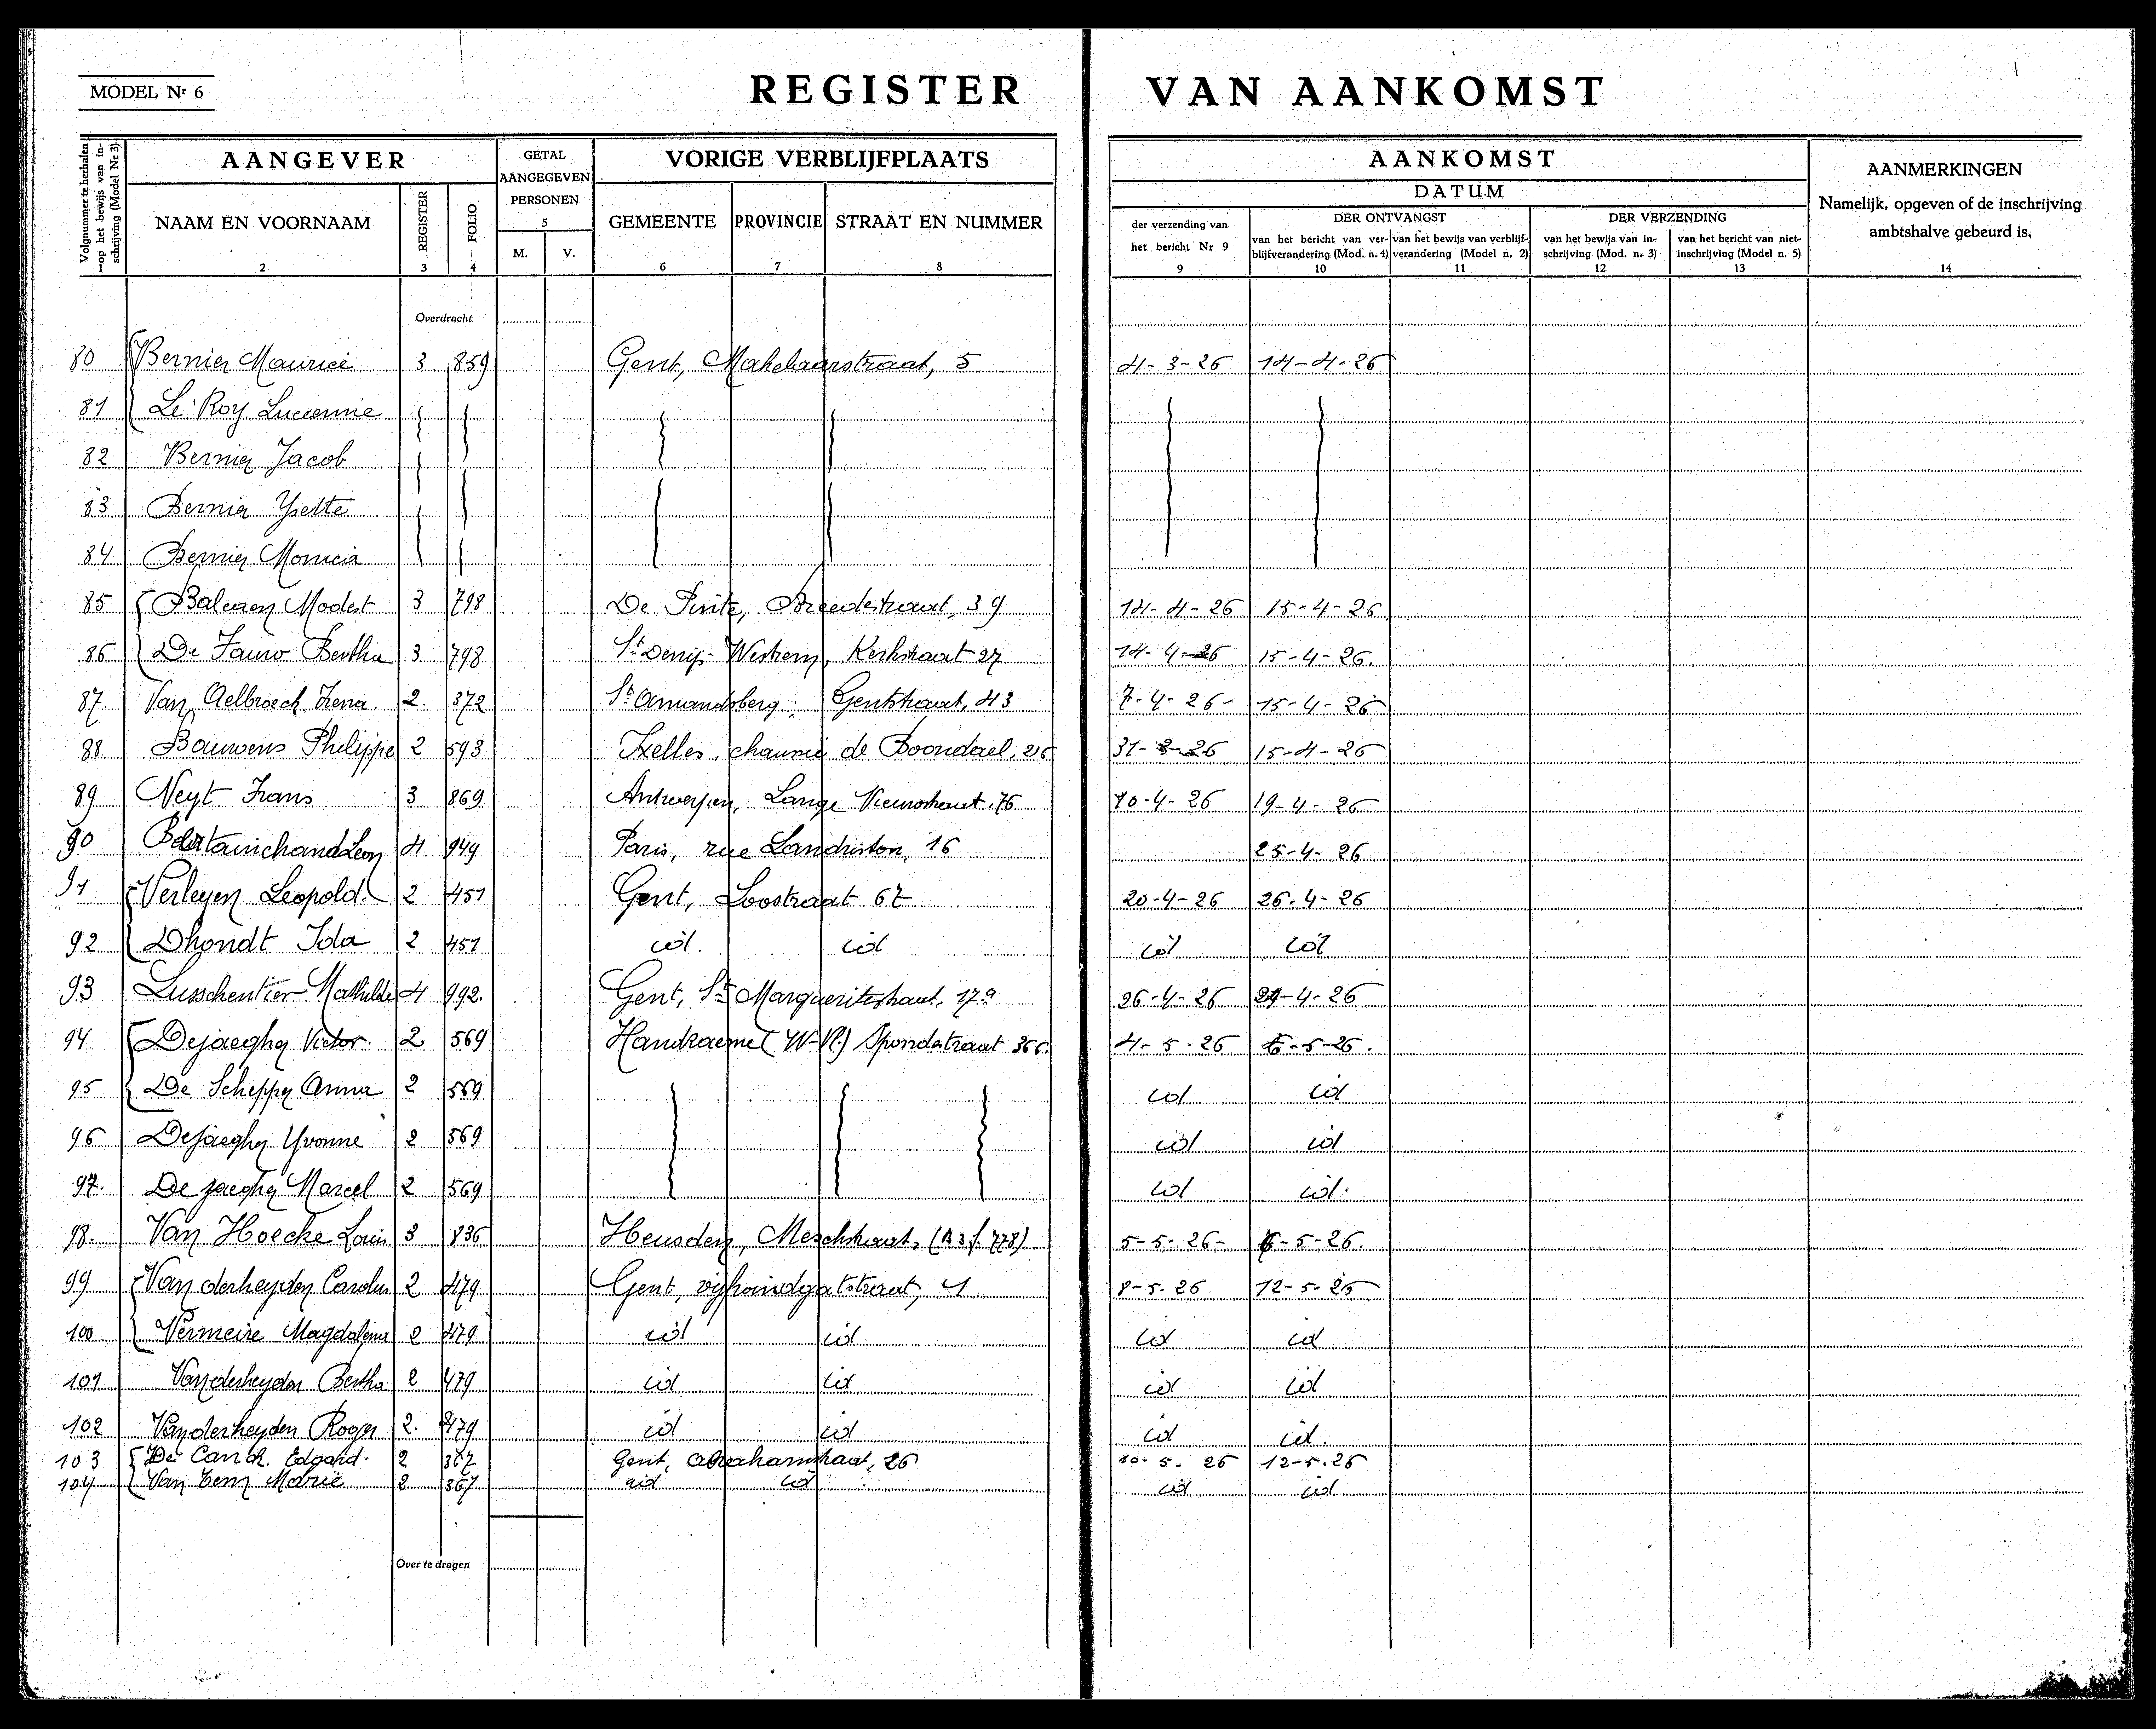 MODEL Nr 6
REGISTER VAN AANKOMST
Volgnummer te herhalen op het bewijs van inschrijving (Model Nr 3)
AANGEVER
GETAL AANGEGEVEN PERSONEN
VORIGE VERBLIJFPLAATS
AANKOMST
AANMERKINGEN
Namelijk, opgeven of de inschrijving ambtshalve gebeurd is.
DATUM
NAAM EN VOORNAAM REGISTER FOLIO 5 M. V. GEMEENTE PROVINCIE STRAAT EN NUMMER
der verzending van het bericht Nr 9
DER ONTVANGST
DER VERZENDING
van het bericht van verblijfverandering (Mod. n. 4)
van het bewijs van verblijfverandering (Model n. 2)
van het bewijs van inschrijving (Mod. n. 3)
van het bericht van niet-inschrijving (Model n. 5)
1 2 3 4 6 7 8 9 10 11 12 13 14
Overdracht
80 Bernier Maurice 3 859 Gent, Makelaarstraat, 5 4-3-26 14-4-26
81 Le Roy Lucienne
82 Bernier Jacob
83 Bernier Yvette
84 Bernier Monica
85 Balcaen Modest 3 798 De Pinte, Breedestraat, 39 14-4-26 15-4-26
86 De Fauw Bertha 3 798 St Denijs-Westrem, Kerkstraat 27 14-4-26 15-4-26.
87. Van Aelbroeck Irena. 2. 372 St Amandsberg, Gentstraat, 43 7-4-26- 15-4-26
88 Bauwens Philippe 2 593 Ixelles, chaussée de Boondael, 216 31-3-26 15-4-26
89 Neyt Frans 3 869 Antwerpen, Lange Nieuwstraat, 76 10-4-26 19-4-26
90 Leon 4 949 Paris, rue 16 25-4-26
91 Verleyen Leopold. 2 451 Gent, Loostraat 67 20-4-26 26-4-26
92 Dhondt Ida 2 451 id. id id id
93 Lusschentier Mathilde 4 992. Gent, St Margueritestraat, 17a 26-4-26 -4-26
94 Dejaegher Victor. 2 569 Handzaeme (W-Vl.) 366. 4-5-26 6-5-26.
95 De Schepper Anna 2 569 id id
96 Dejaegher Yvonne 2 569 id id
97. Dejaegher Marcel 2 569 id id.
98. Van Hoecke Louis 3 836 Heusden, Meschstraat, (R 3 f. 778) 5-5-26- 6-5-26.
99 Van derheyden Carolus 2 479 Gent, vijfwindgatstraat, 4 8-5-26 12-5-26
100 Vermeire Magdalena 2 479 id id id id
101 Vanderheyden Bertha 2 479 id id id id
102 Vanderheyden Roger 2. 479 id id id id.
103 De Canck. Edgard. 2 367 Gent, Abrahamstraat, 26 10-5-26 12-5-26
104 Van Eem Marie 2 367 id id id id
Over te dragen